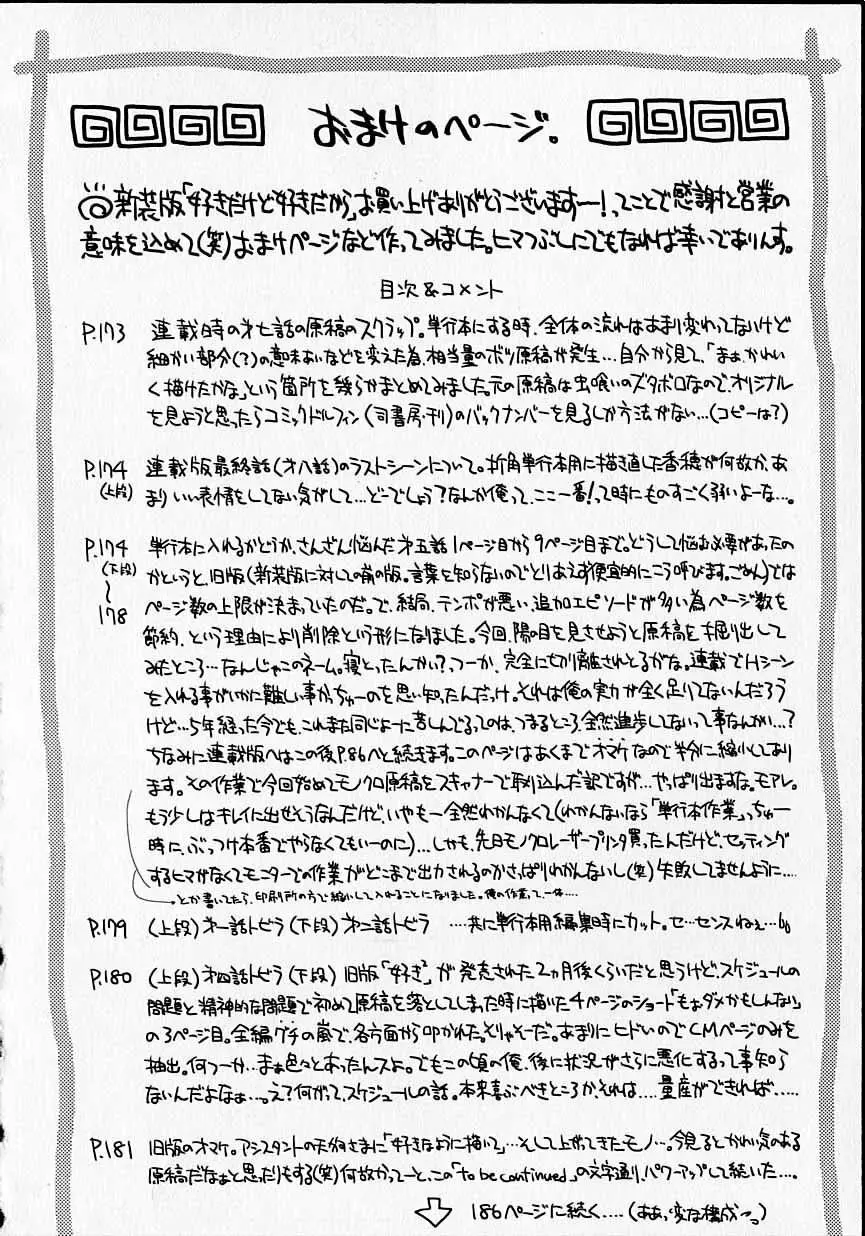 おまけのページ。
新装版「好きだけど好きだから」お買い上げありがとうございますー!ってことで感謝と営業の
意味を込めて(笑)おまけページなど作ってみました。ヒマつぶしにでもなれば幸いでありんす。
目次&コメント
P.173 連載時の才七話の原稿のスクラップ。単行本にする時、全体の流れはあまり変わってないけど
細かい部分(?)の意味あいなどを変えた為、相当量のボツ原稿が発生…自分から見て、「まぁ、かわい
く描けたかな」という箇所を幾らかまとめてみました。元の原稿は虫喰いのズタボロなので、オリジナル
を見ようと思ったらコミックドルフィン(司書房・刊)のバックナンバーを見るしか方法がない…(コピーは?)
P.174 連載版最終話(才八話)のラストシーンについて。折角単行本用に描き直した香穂が何故か、あ
(上段) まりいい表情をしてない気がして…どーでしょう?なんか俺って、ここ一番!って時にものすごく弱いよーな…。
P.174 単行本に入れるかどうか、さんざん悩んだ才五話1ページ目から9ページ目まで。どうして悩む必要があったの
(下段) かというと、旧版(新装版に対しての前の版。言葉を知らないのでとりあえず便宜的にこう呼びます。ごめん)では
〜 ページ数の上限が決まっていたのだ。で、結局、テンポが悪い、追加エピソードが多い為ページ数を
178 節約、という理由により削除という形になりました。今回、陽の目を見させようと原稿を掘り出して
みたところ…なんじゃこのネーム。寝とったんかい?、つーか、完全に切り離されとるがな。連載でHシーン
を入れる事がいかに難しい事か、っちゅーのを思い知ったんだっけ。それは俺の実力が全く足りてないんだろう
けど…5年経った今でも、これまた同じよーに苦しんでる、ってのは、つまるところ、全然進歩してないって事なんかい…?
ちなみに連載版へはこの後P.86へと続きます。このページはあくまでオマケなので半分に縮小してあり
ます。その作業で今回始めてモノクロ原稿をスキャナーで取り込んだ訳ですが…やっぱり出ますな。モアレ。
もう少しはキレイに出せそうなんだけど、いやもー全然わかんなくて(わかんないなら「単行本作業」っちゅー
時に、ぶっつけ本番でやらなくてもいーのに)…しかも、先日モノクロレーザープリンタ買ったんだけど、セッティング
するヒマがなくてモニターでの作業がどこまで出力されるのかさっぱりわかんないし(笑)失敗してませんように…
→とか書いてたら、印刷所の方で縮小して入れることになりました。俺の作業って、一体…
P.179 (上段)才一話トビラ(下段)才二話トビラ …共に単行本用編集時にカット。セ…センスねぇ…
P.180 (上段)才四話トビラ(下段)旧版「好き²」が発売された2ヵ月後くらいだと思うけど、スケジュールの
問題と精神的な問題で初めて原稿を落としてしまった時に描いた4ページのショート「もぉダメかもしんない」
の3ページ目。全編グチの嵐で、各方面から叩かれた。とりゃそーだ。あまりにヒドいのでCMページのみを
抽出。何つーか…まぁ色々とあったんスよ。でもこの頃の俺、後に状況がさらに悪化するって事知ら
ないんだよなぁ…っえ?何がって、スケジュールの話。本来喜ぶべきところか、それは…量産ができれば……
P.181 旧版のオマケ。アシスタントの方々さまに「好きなように描いて」…そして上がってきたモノ…。今見るとかわい気のある
原稿だなぁと思ったりもする(笑)何故かってーと、この「to be continued」の文字通り、パワーアップして続いた…。
186ページに続く…(ああっ、変な構成〜っ)